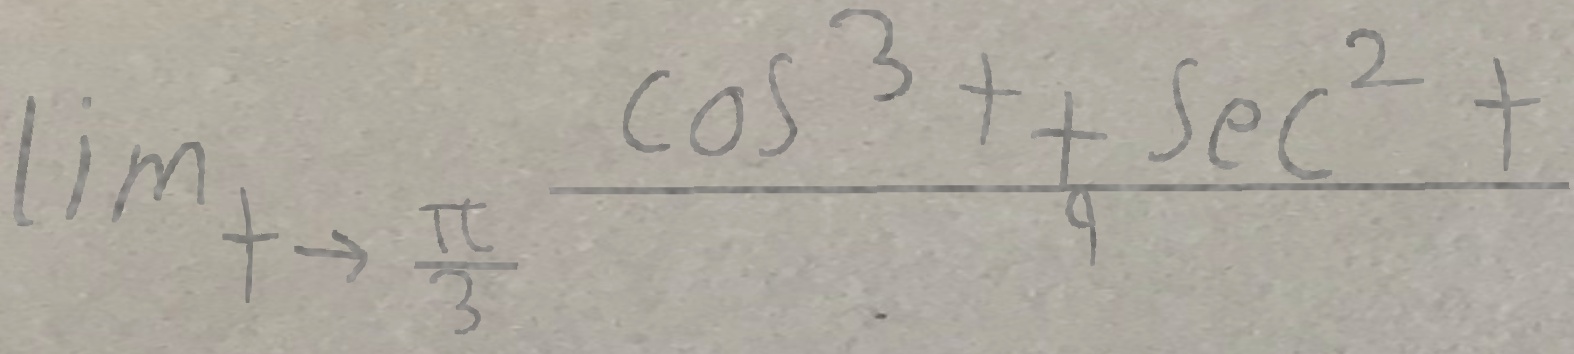 \lim_{t \to \frac{\pi}{3}} \frac{\cos^3 t + \sec^2 t}{9}